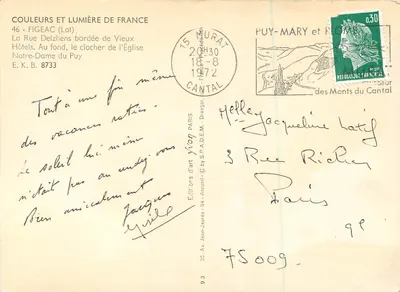 COULEURS ET LUMIÈRE DE FRANCE
46 - FIGEAC (Lot)
La Rue Delzhens bordée de Vieux
Hôtels. Au fond, le clocher de l'Église
Notre-Dame du Puy
E. K. B. 8733
15 MURAT
20H30
18-8
1972
CANTAL
PUY-MARY et
des Monts du Cantal
0,30
Tout à une fin même
des vacances ratées.
Le soleil lui même
n'était pas au rendez vous
Bien amicalement
Jacques
Editions d'art yvon PARIS
S.P.A.D.E.M.
Melle Jacqueline
3 Rue
Paris
9e
75009.